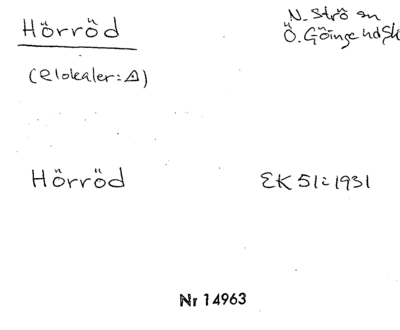 Hörröd
N. Strö sn
Ö. Göinge hd Sk
(2 lokaler: △)
Hörröd
EK 51: 1931
Nr 14963